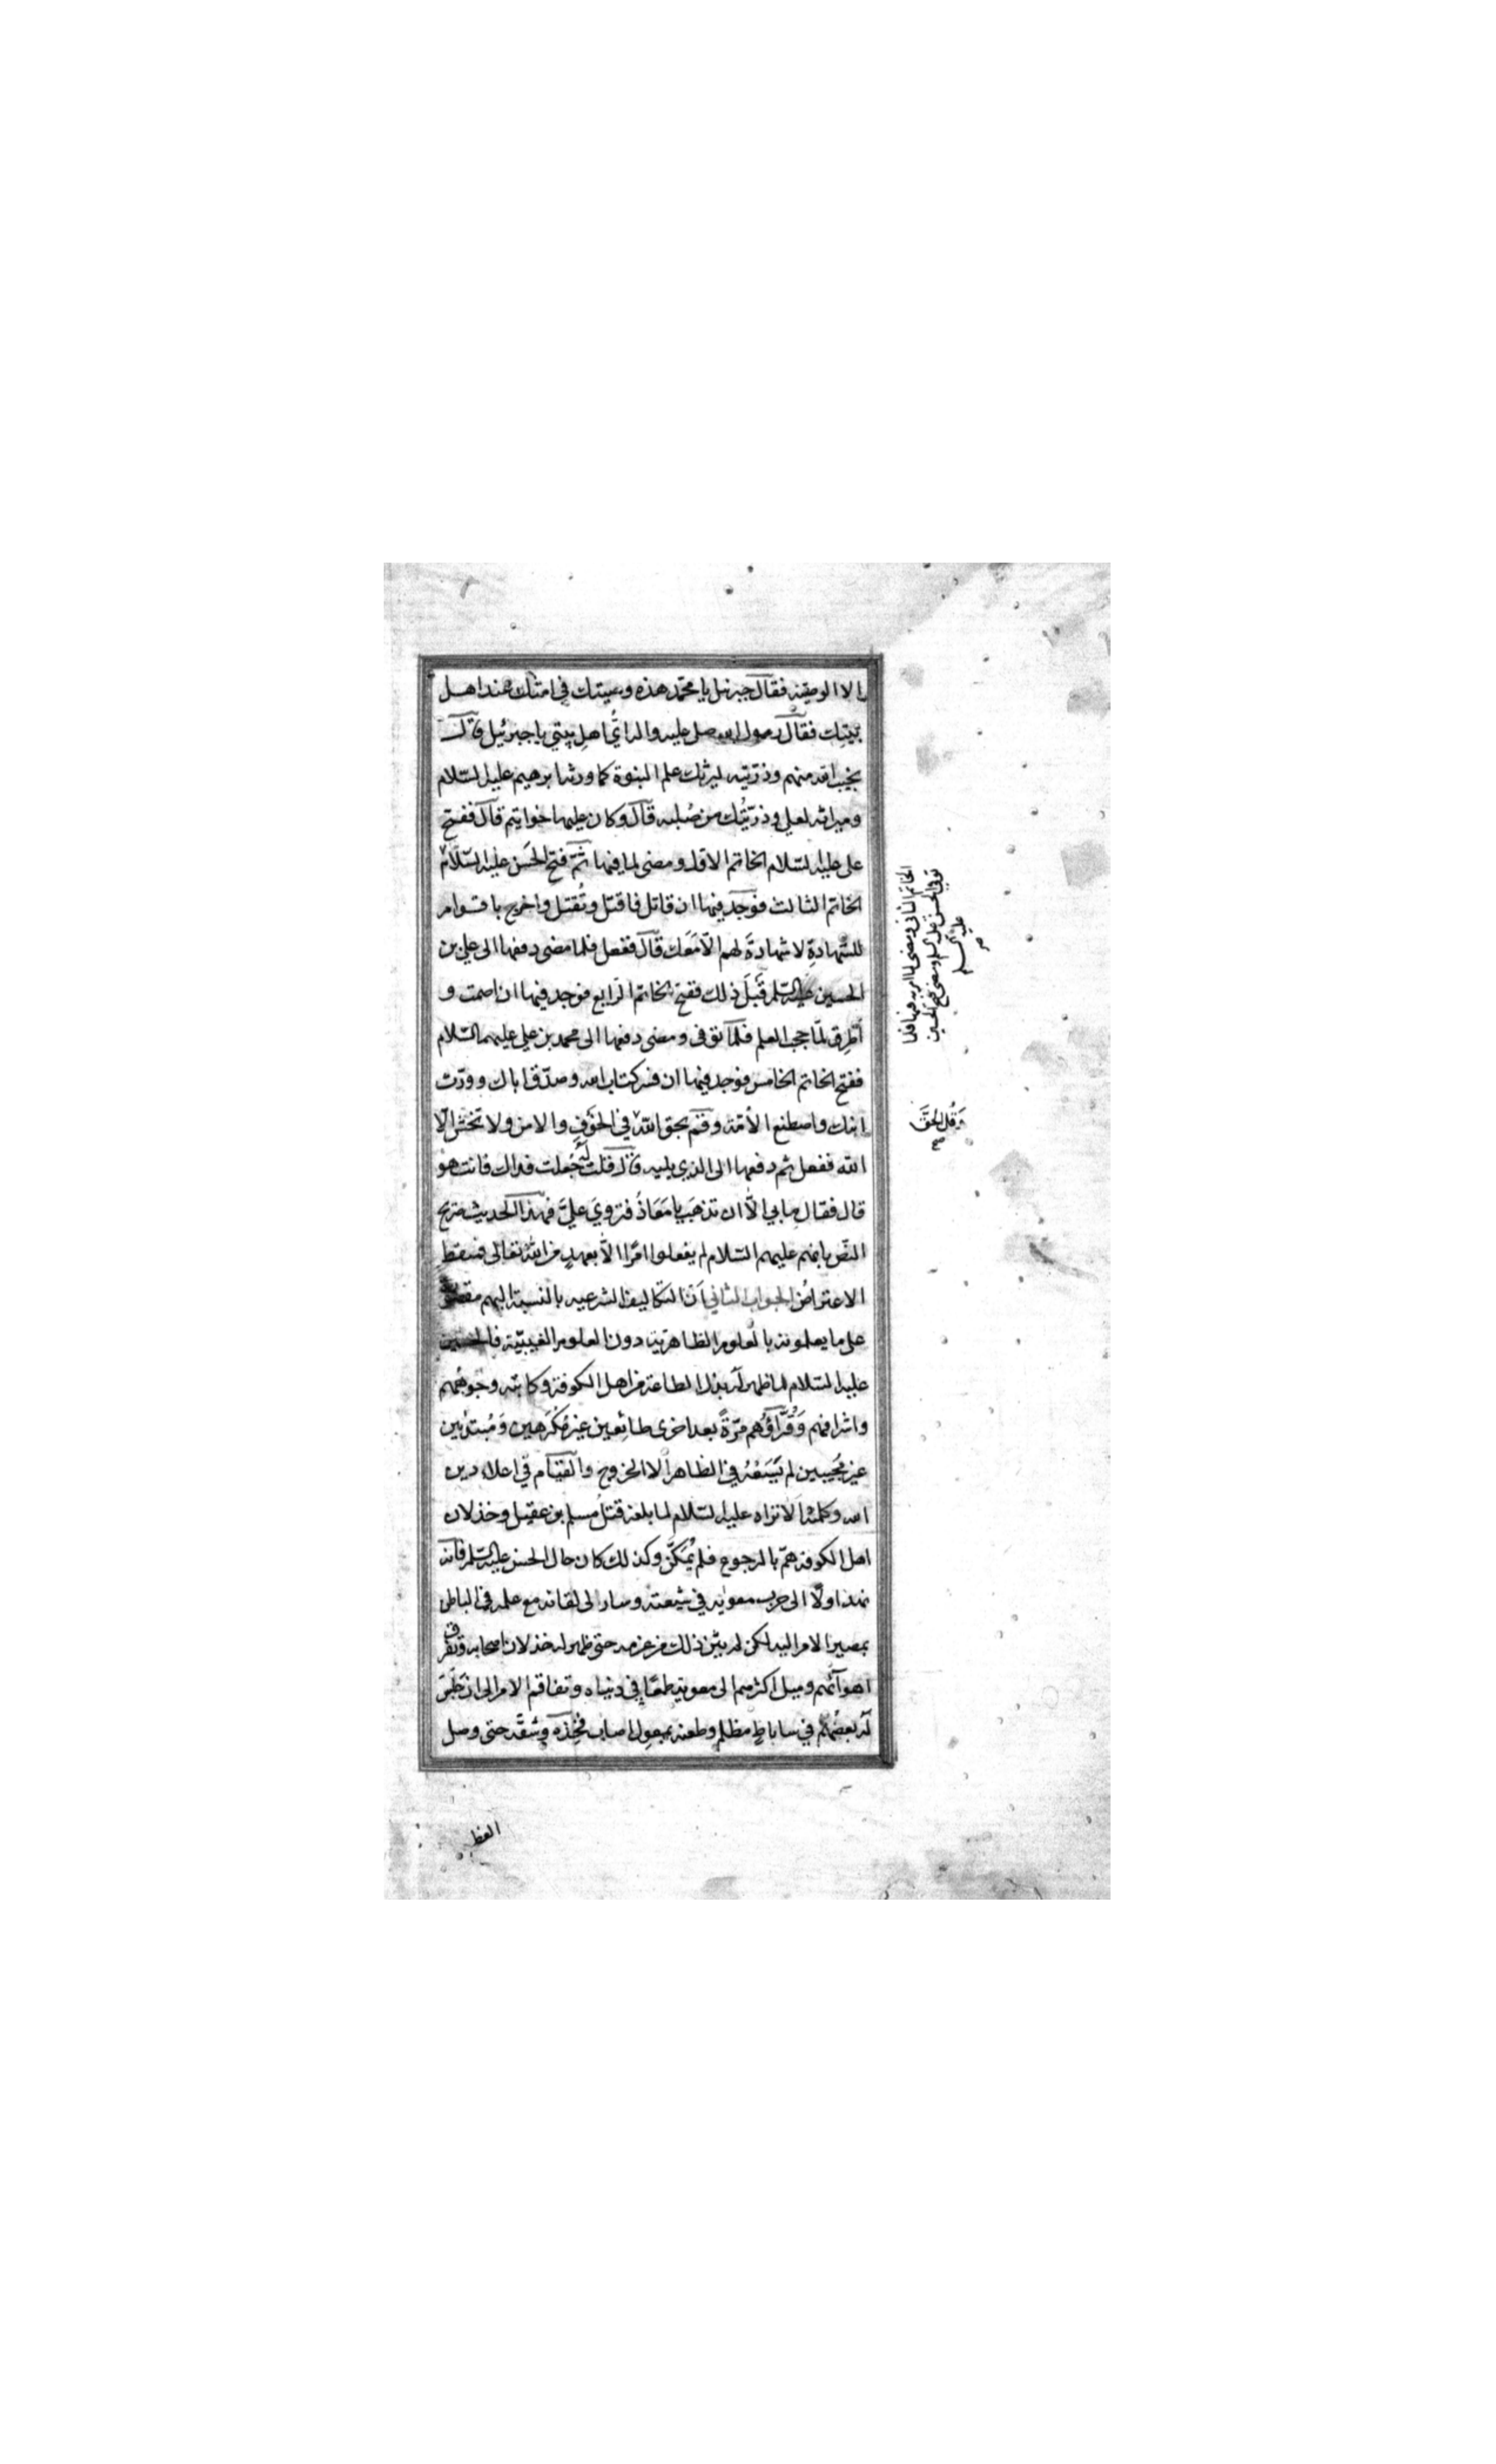 الا الوصية فقال جبرئيل يا محمد هذه وصيتك في امتك عند اهل
بيتك فقال رسول الله صلى عليه واله اىُّ اهل بيتي يا جبرئيل قال
نجيب الله منهم وذريته ليرثك علم النبوة كما ورثه ابرهيم عليه السلام
وميراثه لعلي وذريتك من صُلبه قال وكان عليها خواتيم قال ففتح
علي عليه السلام الخاتم الاول ومضى لما فيها ثم فتح الحسن عليه السلام
الخاتم الثالث فوجد فيها ان قاتل فاقتل وتُقتل واخرج باقوام
للشهادةِ لا شهادةَ لهم الّا مَعَك قال ففعل فلما مضى دفعها الى علي بن
الحسين عليه السلم قَبلَ ذلك ففتح الخاتم الرابع فوجد فيها ان اصمت و
أطرِق لمّا حجب العلم فلمّا توفى ومضى دفعها الى محمد بن علي عليهما السلام
ففتح الخاتم الخامس فوجد فيها ان فسر كتاب الله وصدّق اباك وورّث
ابنك واصطنع الأمّة وقم بحق الله في الخوفِ والامن ولا تخش الّا
الله ففعل ثم دفعها الى الذي يليه قال قلت له جُعلت فداك فانت هو
قال فقال ما بي الّا ان تذهب يا مَعَاذُ فتروي عليَّ فهذا الحديث صريح
النّص بانهم عليهم السلام لم يفعلوا امرًا الّا بعهدٍ من الله تعالى فسقط
الاعتراضُ الجواب الثاني انّ التكاليف الشرعيه بالنسبة اليهم
على ما يعلمونه بالعلوم الظاهرية دون العلوم الغيبيّة فالحسين
عليه السلام لما ظهر له بذل الطاعة من اهل الكوفة وكاتبه وجوههم
واشرافهم وَقُرّاؤهم مرّةً بعد اخرى طائعين غير مُكرَهين وَمُبتدئين
غير مُجيبين لم يَسَعْهُ في الظاهر الا الخروج والقيام في اعلاء دين
الله وكلمته الا تراه عليه السلام لما بلغه قتلُ مسلم بن عقيل وخذلان
اهل الكوفة همّ بالرجوع فلم يُمَكّن وكذلك كان حال الحسن عليه السلم فانه
نهد اولًا الى حرب معويه في شيعته وسار الى لقائه مع علمه في الباطن
بمصير الامر اليه لكن لم يثن ذلك من عزمه حتى ظهر له خذلان اصحابه وتفرق
اهوائهم وميل اكثرهم الى معوية طمعًا في دنياه وتفاقم الامر الى ان جَلَسَ
له بعضُهم في ساباطٍ مظلمٍ وطعنه بمعولٍ اصاب فخذه وشقّه حتى وصل
العظم
الخاتم الثاني ومضى لما امر به فيها فلما
توفي الحسن عليه السلم ومضى فتح الحسين
عليه السلم
صح
وَقُل الحَقَّ
صح